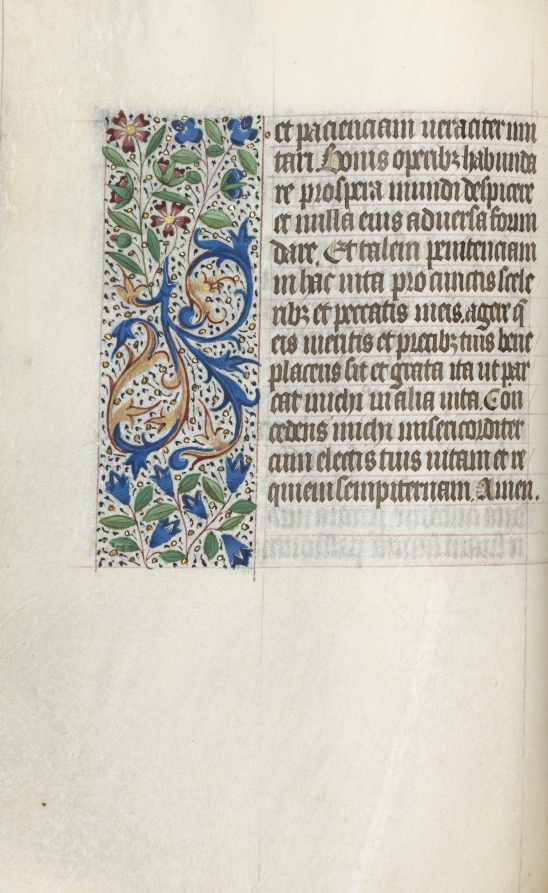 et pacienciam ueraciter imi
tari. Bonis operibꝫ habunda
re prospera mundi despicere
et nulla eius aduersa formi
dare. Et talem penitenciam
in hac uita pro cunctis scele
ribꝫ et peccatis meis agere q̄
eis meritis et precibꝫ tuis bene
placens sit et grata ita ut par
cat michi in alia uita. Con
cedens michi misericorditer
cum electis tuis uitam et re
quiem sempiternam. Amen.